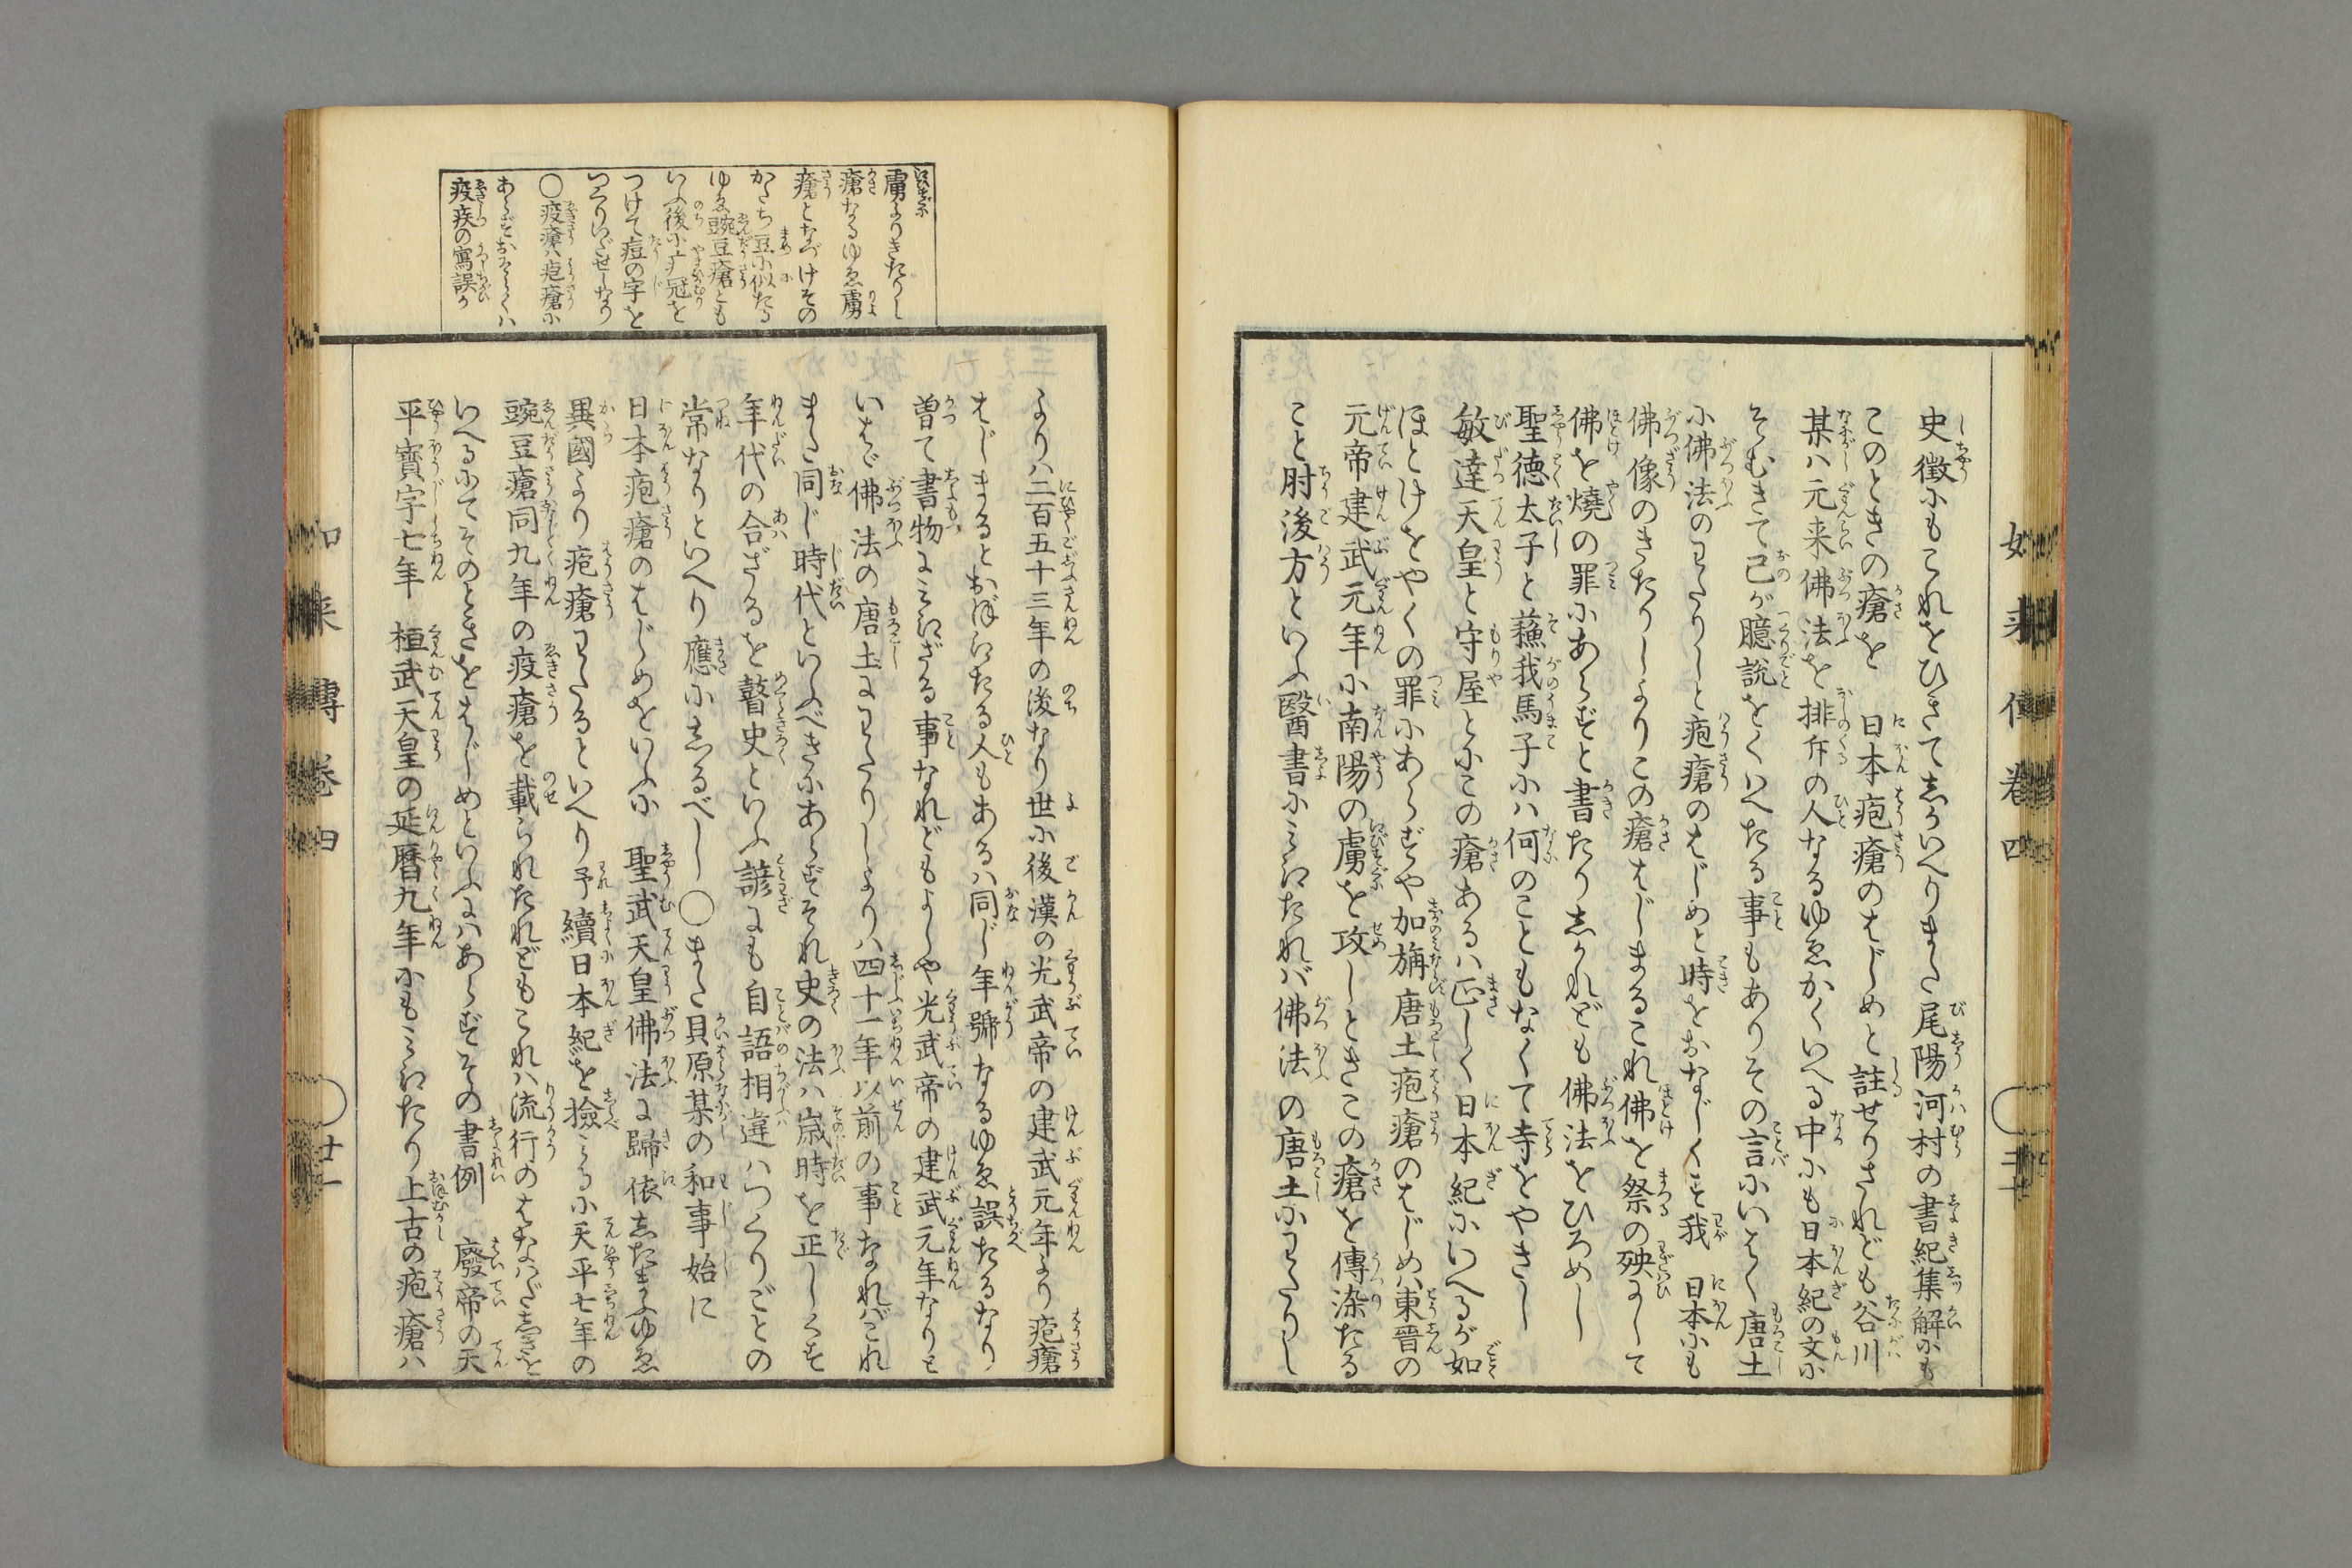 如来傳卷四
三十
史徴にもこれをひきてしかいへりまた尾陽河村の書紀集解にも
このときの瘡を　日本疱瘡のはじめと註せりされども谷川
某ハ元来佛法を排斥の人なるゆゑかくいへる中にも日本紀の文に
そむきて己が臆説をくはへたる事もありその言にいはく唐土
に佛法のわたりしと疱瘡のはじめと時をおなじくす我　日本にも
佛像のきたりしよりこの瘡はじまるこれ佛を祭の殃にして
佛を燒の罪にあらずと書たりしかれども佛法をひろめし
聖徳太子と蘓我馬子にハ何のこともなくて寺をやきし
敏達天皇と守屋とにこの瘡あるハ正しく日本紀にいへるが如
ほとけをやくの罪にあらずや加旃唐土疱瘡のはじめハ東晉の
元帝建武元年に南陽の虜を攻しときこの瘡を傳染たる
こと肘後方といふ醫書にみえたれバ佛法の唐土にわたりし
よりハ二百五十三年の後なり世に後漢の光武帝の建武元年より疱瘡
はじまるとおぼえたる人もあるハ同じ年號なるゆゑ誤たるなり
曽て書物にみえざる事なれどもよしや光武帝の建武元年なりと
いはゞ佛法の唐土にわたりしよりハ四十一年以前の事なれバこれ
また同じ時代といふべきにあらずそれ史の法ハ歳時を正しくす
年代の合ざるを瞽史といふ諺にも自語相違ハつくりごとの
常なりといへり應にしるべし〇また貝原某の和事始に
日本疱瘡のはじめをいふに　聖武天皇佛法に歸依したまふゆゑ
異國より疱瘡わたるといへり予續日本紀を撿みるに天平七年の
豌豆瘡同九年の疫瘡を載られたれどもこれハ流行のはなハだしきを
いへるにてそのときをはじめといふにハあらずその書例　廢帝の天
平寳字七年　桓武天皇の延暦九年にもみえたり上古の疱瘡ハ
虜よりきたりし
瘡なるゆゑ虜
瘡となづけその
かたち豆に似たる
ゆゑ豌豆瘡とも
いふ後に疒冠を
つけて痘の字を
つくりいだせしなり
〇疫瘡ハ疱瘡に
あらずおそらくハ
疫疾の寫誤か
如来傳卷四
廿一